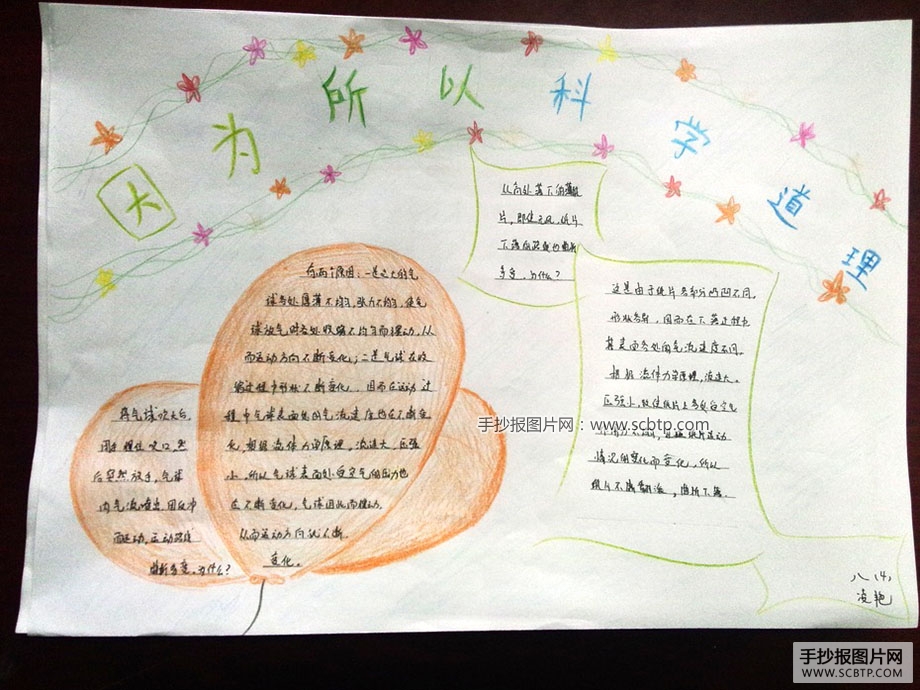 因为所以科学道理
从高处落下的薄纸
片，即使无风，纸片
下落的路线也曲折
多变，为什么？
有两个原因：一是吹大的气
球各处厚薄不均，张力不均，使气
球放气时各处收缩不均匀而摆动，从
而运动方向不断变化；二是气球在收
缩过程中形状不断变化，因而在运动过
程中气球表面处的气流速度也在不断变
化，根据流体力学原理，流速大，压强
小，所以气球表面处受空气的压力也
在不断变化，气球因此而摆动，
从而运动方向就不断
变化。
将气球吹大后，
用手捏住吹口，然
后突然放手，气球
内气流喷出，因反冲
而运动，运动路线
曲折多变，为什么？
这是由于纸片各部分凸凹不同，
形状各异，因而在下落过程中
其表面各处的气流速度不同，
根据流体力学原理，流速大，
压强小，致使纸片上各处受空气
纸片运动
情况的变化而变化，所以
纸片不断翻滚，曲折下落。
八（4）
凌艳
手抄报图片网：www.scbtp.com
手抄报图片网
WWW.SCBTP.COM